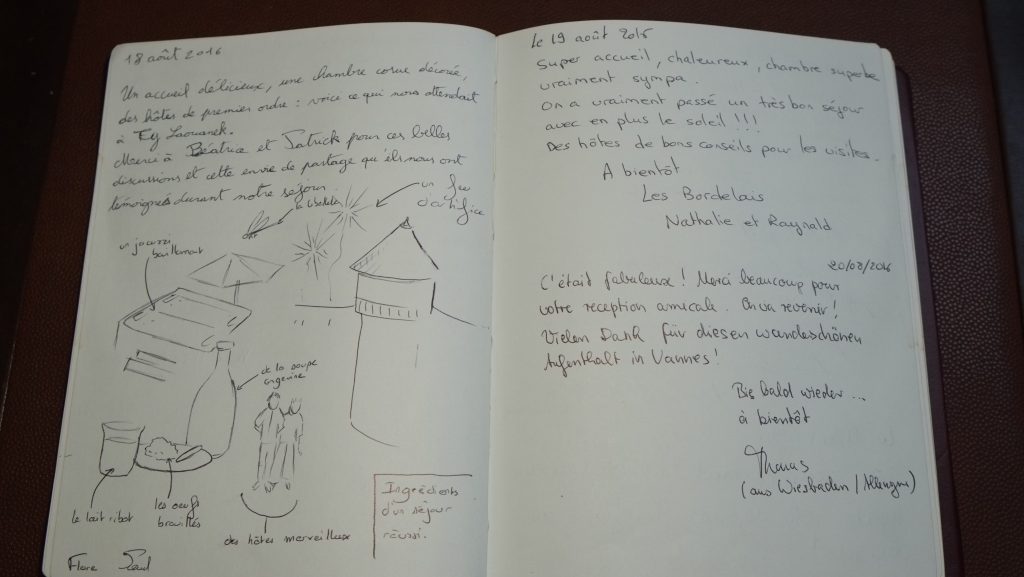 18 août 2016
Un accueil délicieux, une chambre cosue décorée,
des hôtes de premier ordre : voici ce qui nous attendait
à Ty Laouanek.
Merci à Béatrice et Patrick pour ces belles
discussions et cette envie de partage qu'ils nous ont
témoignés durant notre séjour.
un feu
d'artifice
la libellule
un jacuzzi
bouillonnant
de la soupe
angevine
le lait ribot
les oeufs
brouillés
des hôtes merveilleux
Ingrédients
d'un séjour
réussi.
Flore Paul
Le 19 août 2016
Super accueil, chaleureux, chambre superbe
vraiment sympa.
On a vraiment passé un très bon séjour
avec en plus le soleil !!!
Des hôtes de bons conseils pour les visites.
A bientôt
Les Bordelais
Nathalie et Raynald
20/08/2016
C'était fabuleux ! Merci beaucoup pour
votre reception amicale. On va revenir !
Vielen Dank für diesen wundeschönen
Aufenthalt in Vannes !
Bis bald wieder ...
à bientôt
Thomas
(aus Wiesbaden / Allemagne)